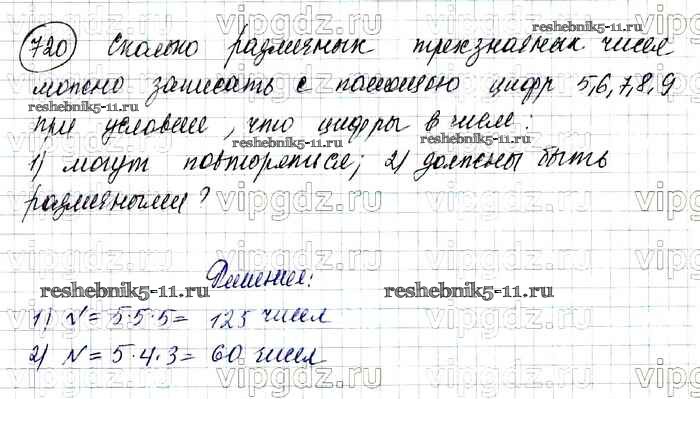 720 Сколько различных трехзначных чисел
можно записать с помощью цифр 5,6,7,8,9
при условии, что цифры в числе:
1) могут повторяться; 2) должны быть
различными?
Решение:
1) N = 5·5·5 = 125 чисел
2) N = 5·4·3 = 60 чисел
vipgdz.ru
reshebnik5-11.ru